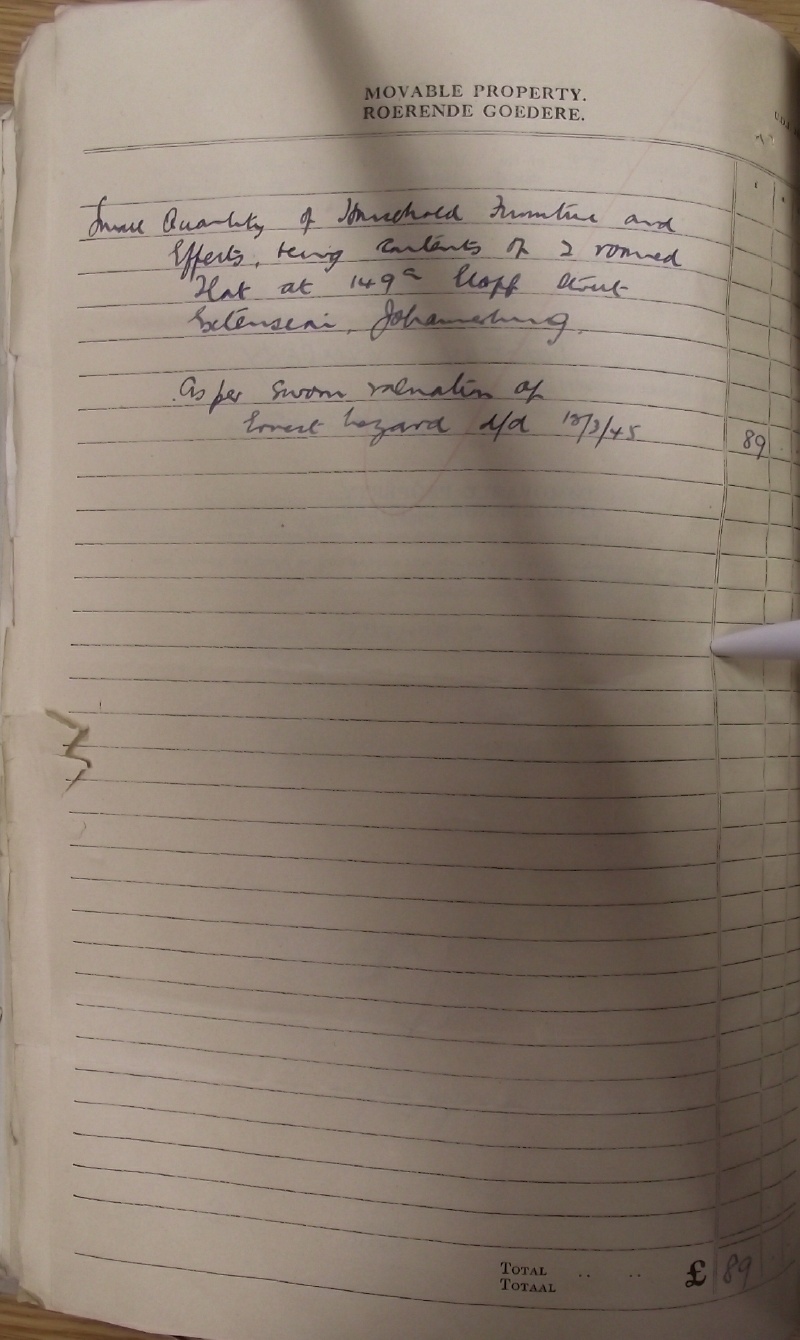 MOVABLE PROPERTY.
ROERENDE GOEDERE.
Small Quantity of Household Furniture and
Effects, being contents of 2 roomed
Flat at 149a Street
Extension, Johannesburg.
As per sworn valuation of
Ernest Lezard d/d 12/3/45
89
TOTAL .. .. £ 89
TOTAAL